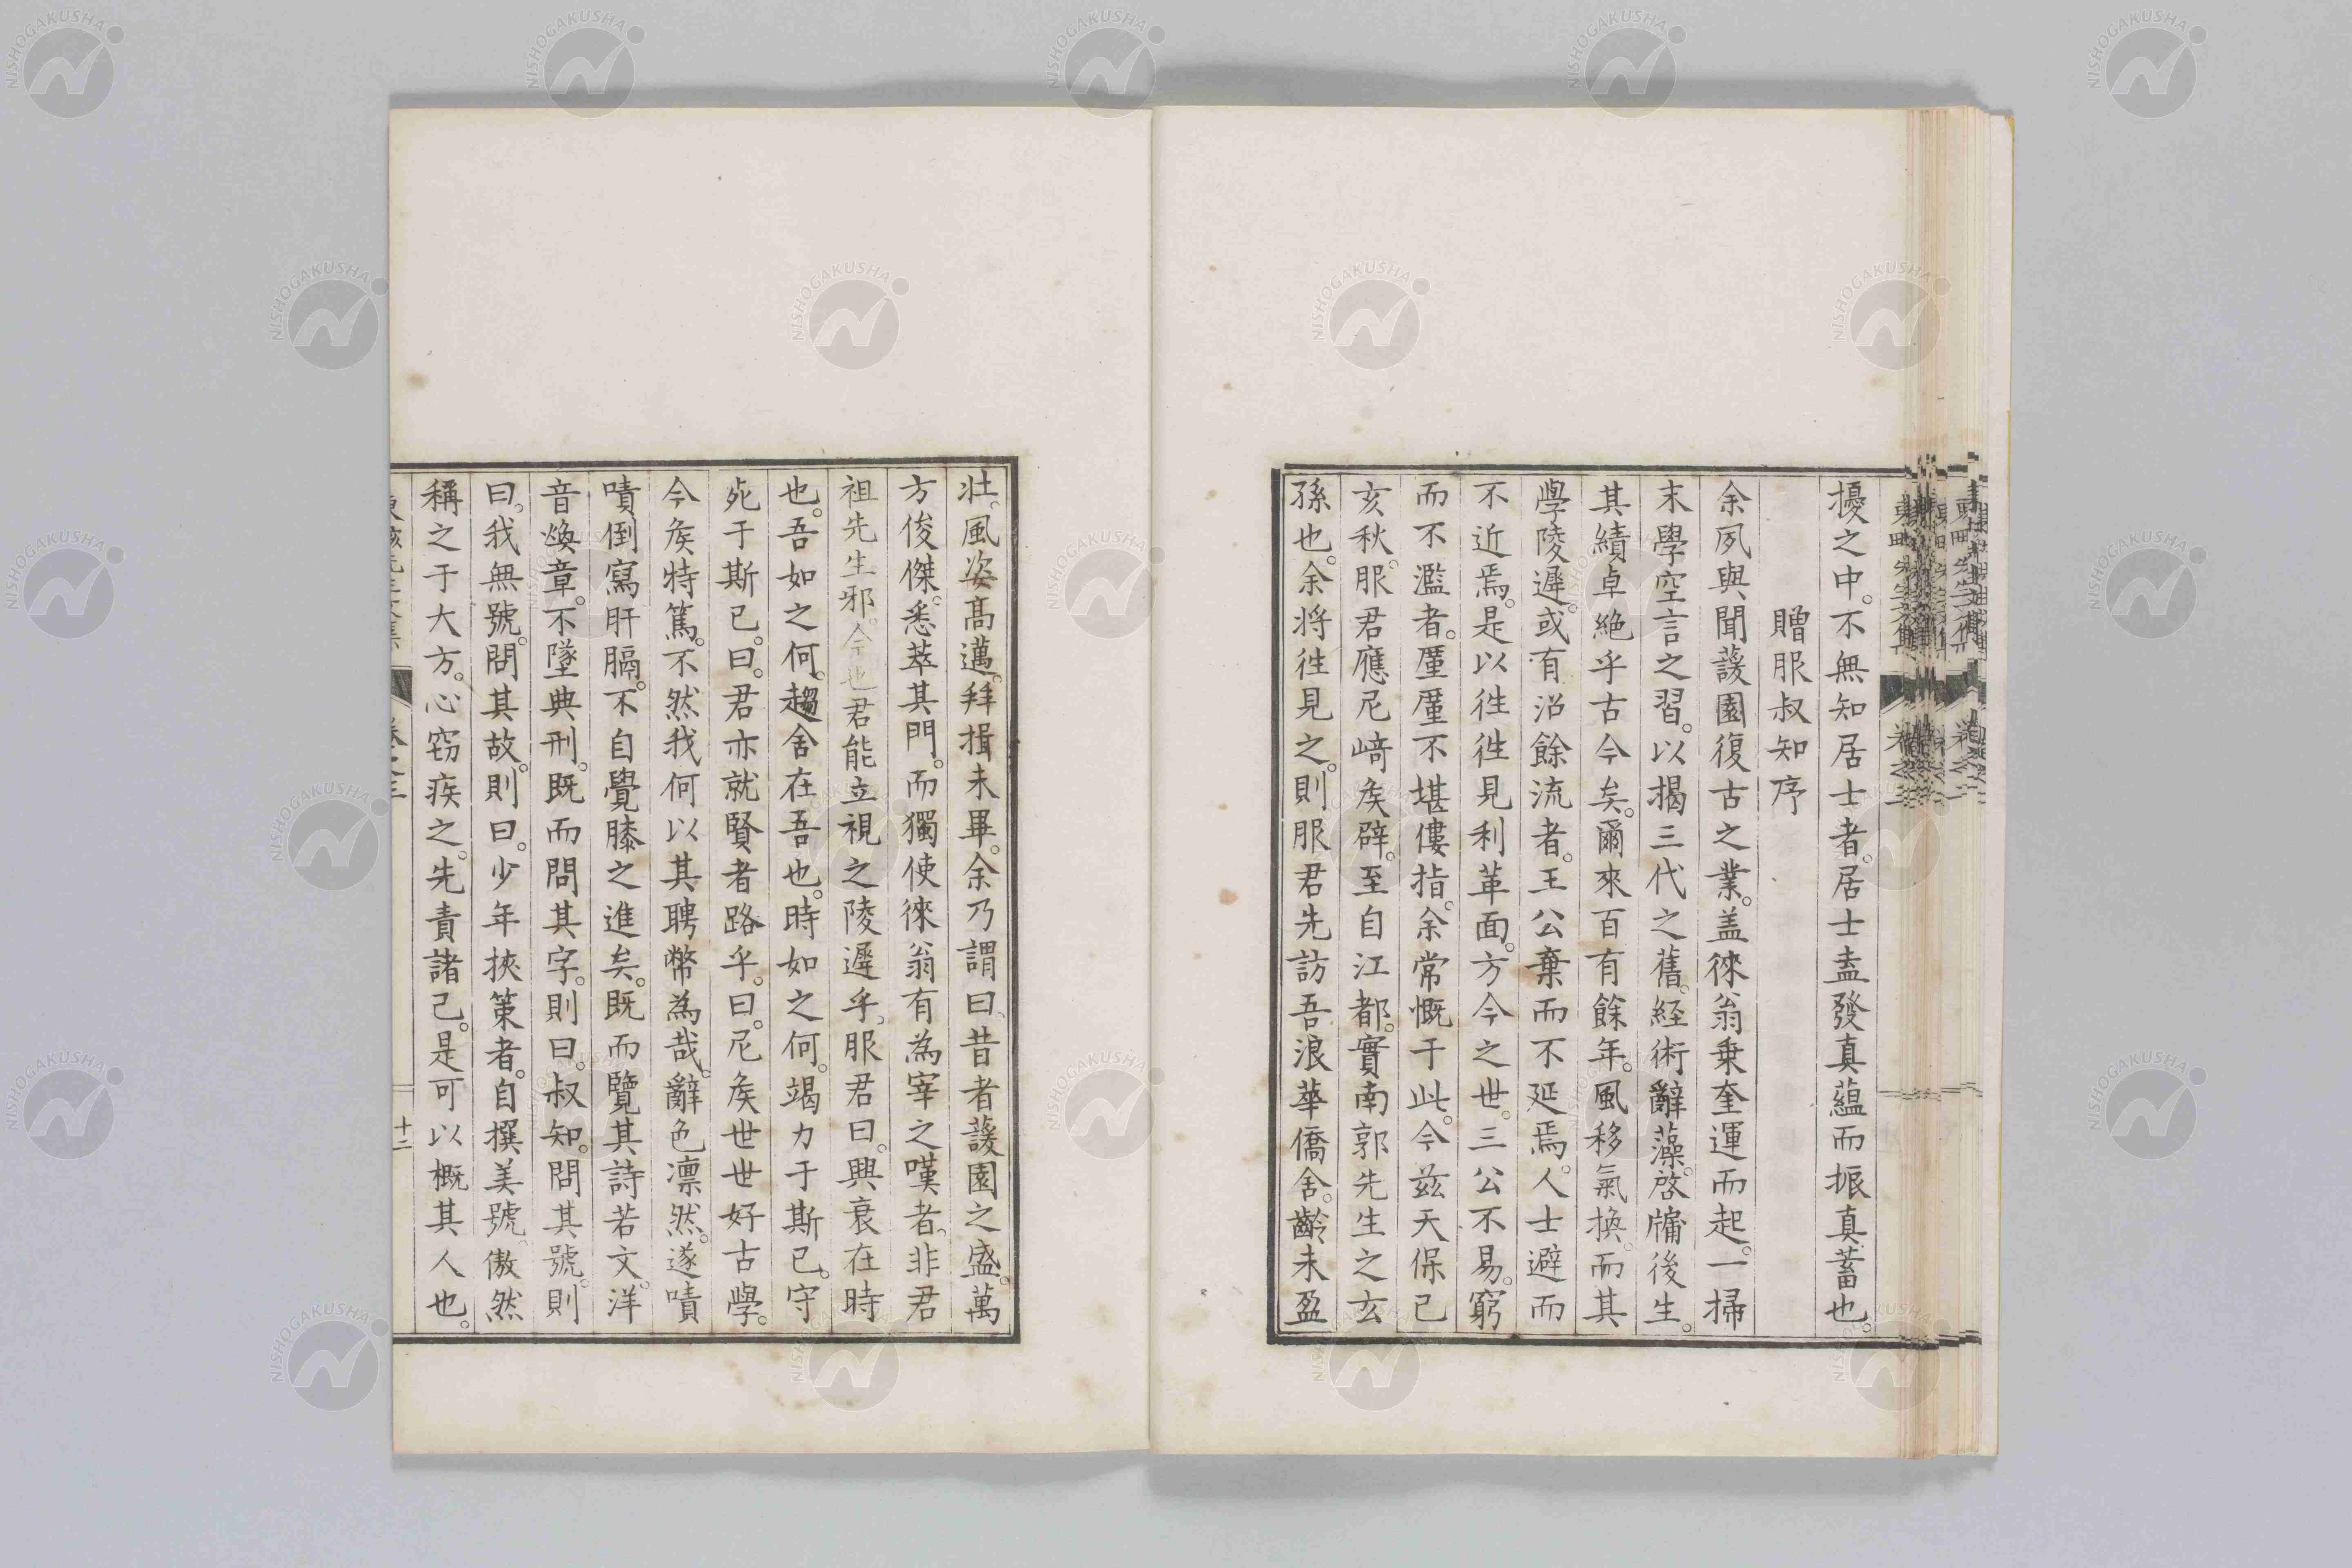 擾之中。不無知居士者。居士盍發真蘊而振真蓄也。
贈服叔知序
余夙與聞蘐園復古之業。盖徠翁乗奎運而起。一掃
末學空言之習。以揭三代之舊。経術辭藻。啓牖後生。
其績卓絶乎古今矣。爾來百有餘年。風移氣換。而其
學陵遲。或有沿餘流者。王公棄而不延焉。人士避而
不近焉。是以徃徃見利革面。方今之世。三公不易。窮
而不濫者。厪厪不堪僂指。余常慨于此。今茲天保己
亥秋。服君應尼﨑矦辟。至自江都。實南郭先生之玄
孫也。余将徃見之。則服君先訪吾浪華僑舍。齡未盈
壮。風姿髙邁。拜揖未畢。余乃謂曰、昔者蘐園之盛。萬
方俊傑。悉萃其門。而獨使徠翁有為宰之嘆者、非君
祖先生邪。今也君能立視之陵遲乎、服君曰。興衰在時
也。吾如之何。趨舍在吾也。時如之何。竭力于斯已。守
死于斯已。曰。君亦就賢者路乎。曰。尼矦世世好古學。
今矦特篤。不然我何以其聘幣為哉。辭色凛然。遂嘖
嘖倒寫肝膈。不自覺膝之進矣。既而覽其詩若文。洋
音煥章。不墜典刑。既而問其字。則曰。叔知。問其號。則
曰。我無號。問其故。則曰。少年挾策者。自撰美號。傲然
稱之于大方。心窃疾之。先責諸己。是可以概其人也。
卷之三
十二
NISHOGAKUSHA